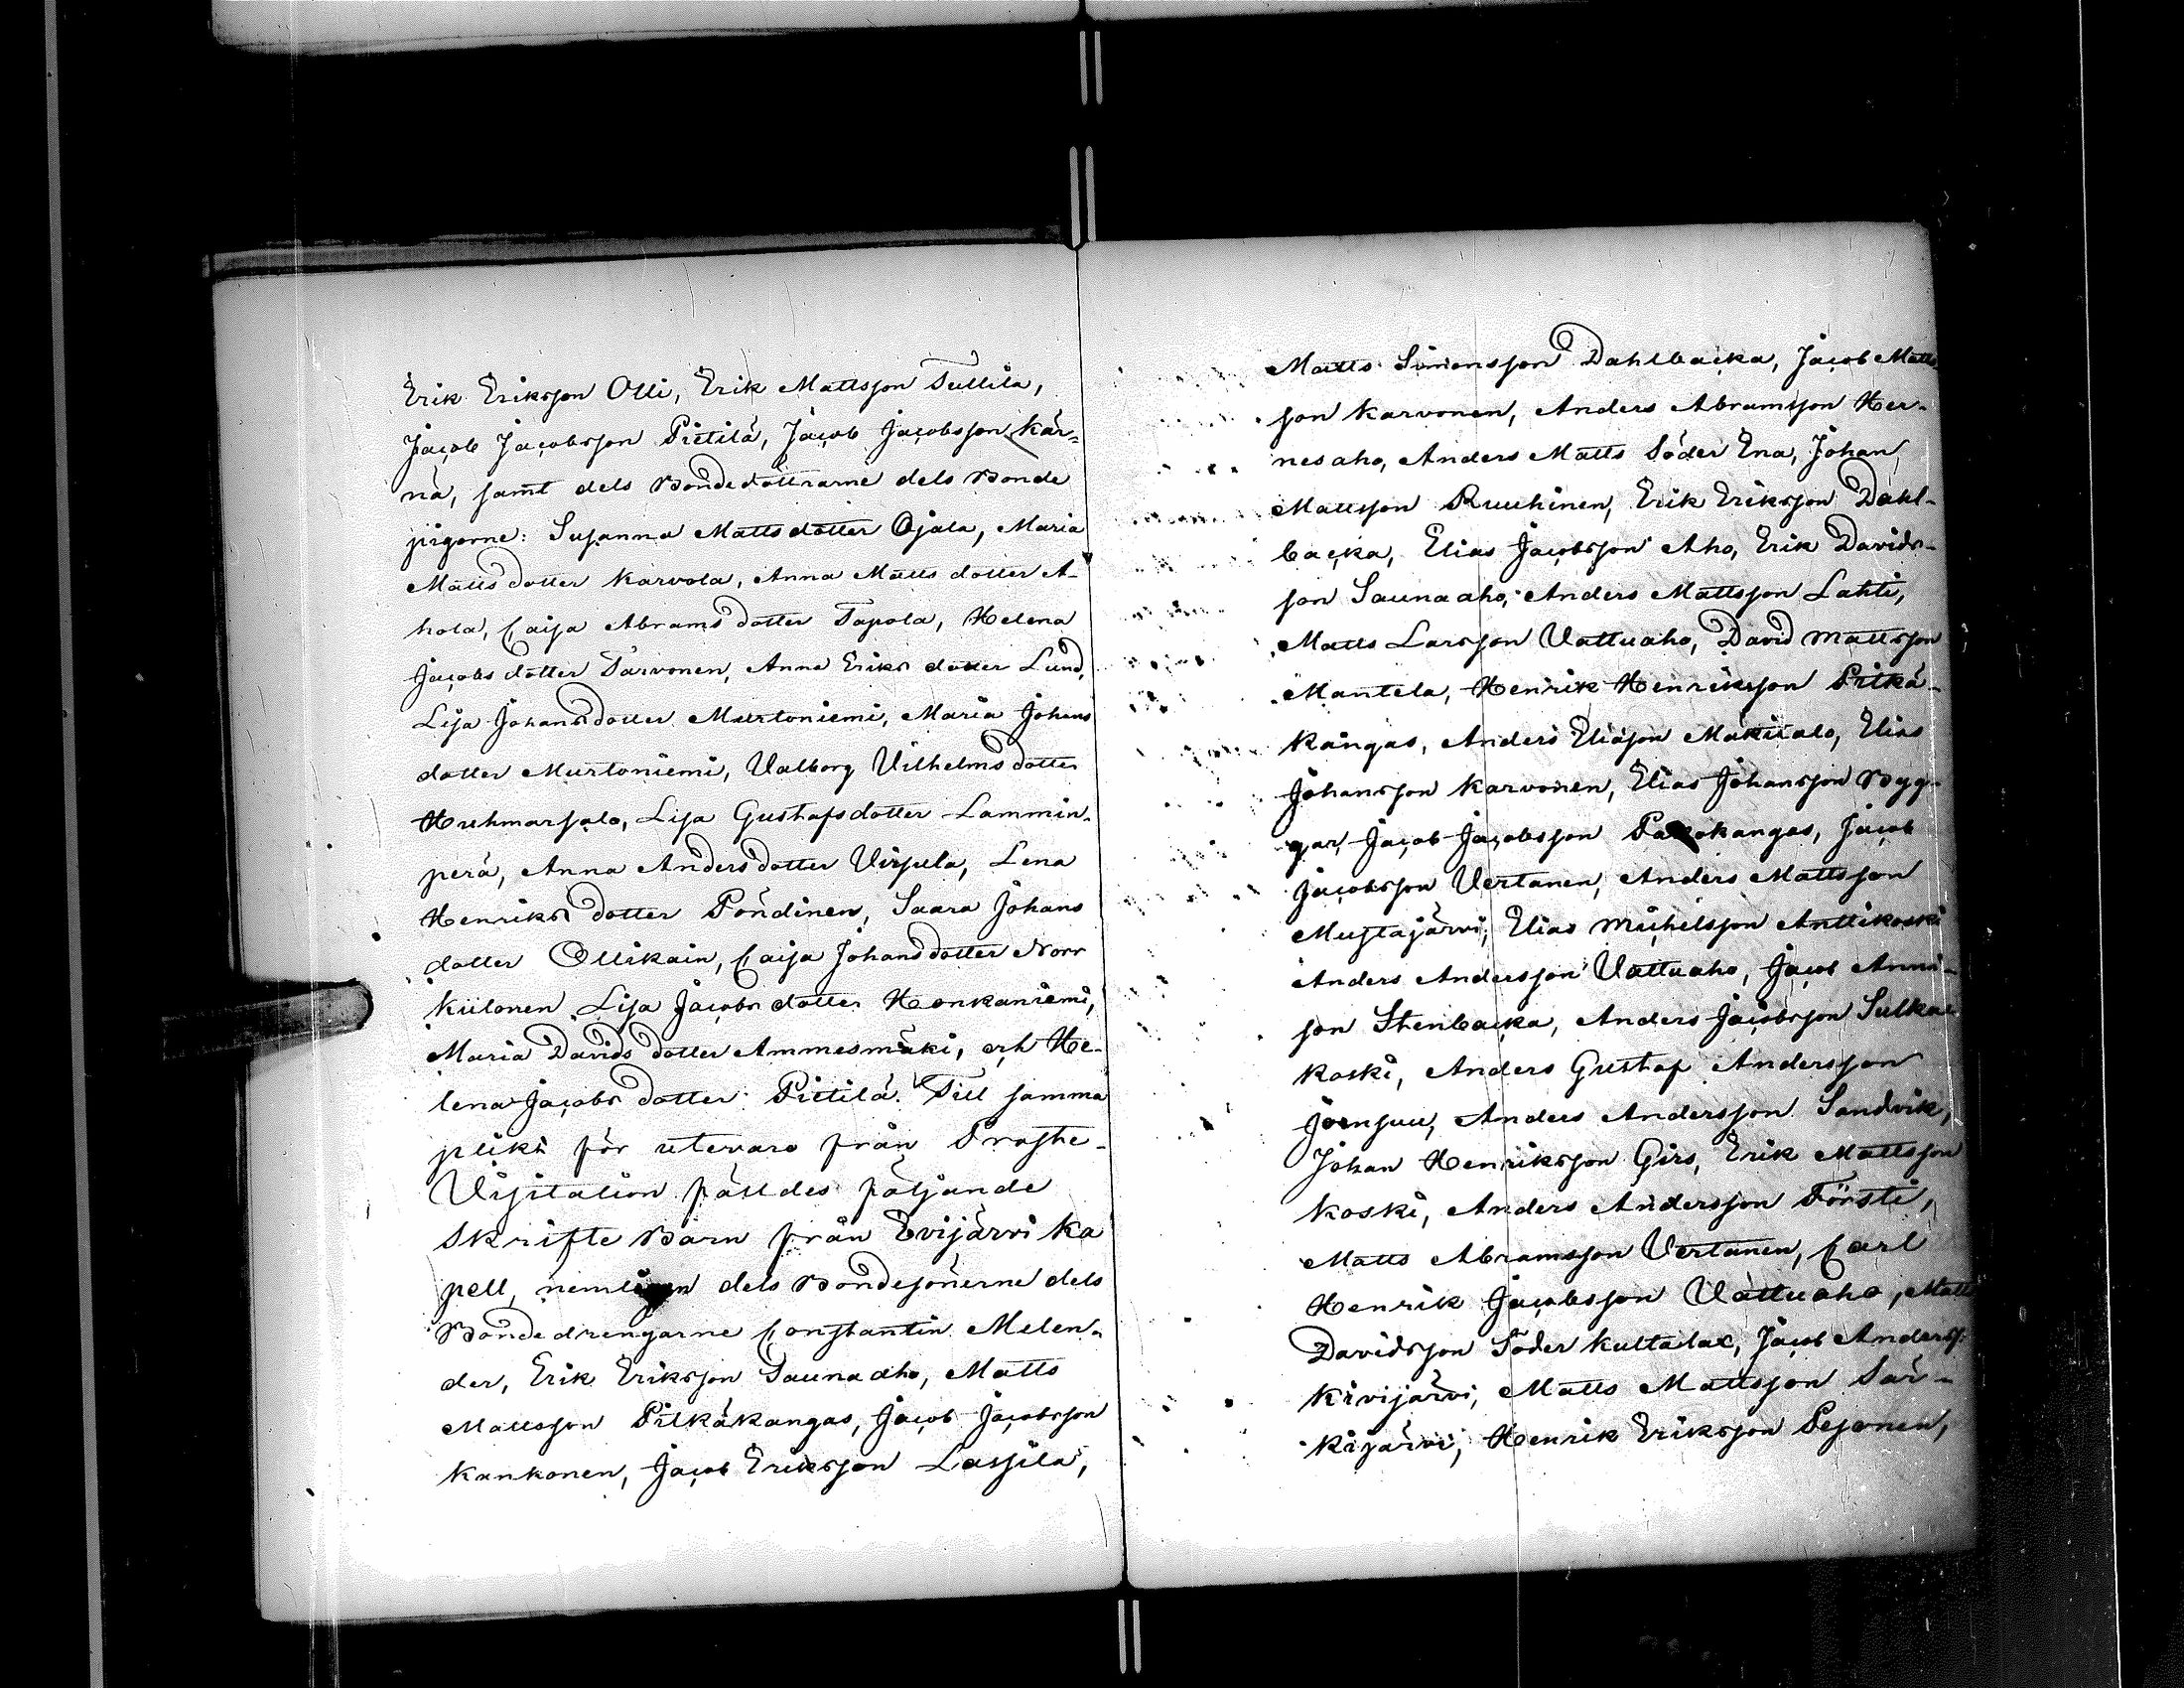 Erik Eriksson Olli, Erik Mattsson Tullila,
Jacob Jacobsson Pietilä, Jacob Jacobsson Kär=
nä, samt dels Bondedöttrarne dels Bonde
pigorne: Susanna Mattsdotter Ojala, Maria
Matts dotter Karvola, Anna Matts dotter A-
hola, Caisa Abrams dotter Tapola, Helena
Jacobs dotter Tarvonen, Anna Eriks dotter Lund,
Lisa Johans dotter Murtoniemi, Maria Johans
dotter Murtoniemi, Valborg Vilhelms dotter
Huhmarsalo, Lisa Gustafsdotter Lammin-
perä, Anna Anders dotter Visjula, Lena
Henriks dotter Pöndinen, Saara Johans
dotter Ollikain, Caisa Johans dotter Norr
Kiilonen Lisa Jacobs dotter Honkaniemi,
Maria Davids dotter Ammesmäki, och He-
lena Jacobs dotter Pietilä. Till samma
plikt för utevaro från Proste-
Visitation fälldes följande
Skrifte Barn från Evijärvi Ka
pell, nemligen dels Bondesönerne dels
Bondedrengarne Constantin Melen-
der, Erik Eriksson Saunaaho, Matts
Mattsson Pitkäkangas, Jacob Jacobsson
Kankonen, Jacob Eriksson Lassila,
Matts Simonsson Dahlbacka, Jacob Matts
son Karvonen, Anders Abramsson Her-
nesaho, Anders Matts Söder Ena, Johan
Mattsson Ruuhinen, Erik Eriksson Dahl-
backa, Elias Jacobsson Aho, Erik Davids-
son Saunaaho, Anders Mattsson Lahti,
Matts Larsson Vattuaho, David Mattsson
Mantela, Henrik Henriksson Pitkä-
Kangas, Anders Eliasson Mäkitalo, Elias
Johansson Karvonen, Elias Johansson Bygg-
gar, Jacob Jacobsson Jacob
Jacobsson Vertanen, Anders Mattsson
Mustajärvi, Elias Michelsson Anttikoski
Anders Andersson Vattuaho, Jacob Anni-
son Stenbacka, Anders Jacobsson Sulka-
koski, Anders Gustaf Andersson
Joensuu, Anders Andersson Sandvik,
Johan Henriksson Girs, Erik Mattsson
Koski, Anders Andersson Försti,
Matts Abramsson Vertanen, Carl
Henrik Jacobsson Vattuaho, Matts
Davidsson Söder Kultalax, Jacob Anderss:
Kivijärvi, Matts Mattsson Sär-
kijärvi, Henrik Eriksson Pesonen,